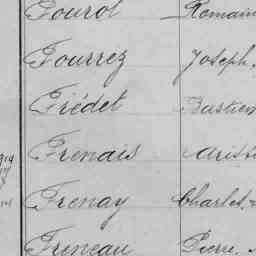 Fourol Romain
Fourrez Joseph
Frédet Bastien
Frenais Arist
Frenay Charles
Freneau Pierre